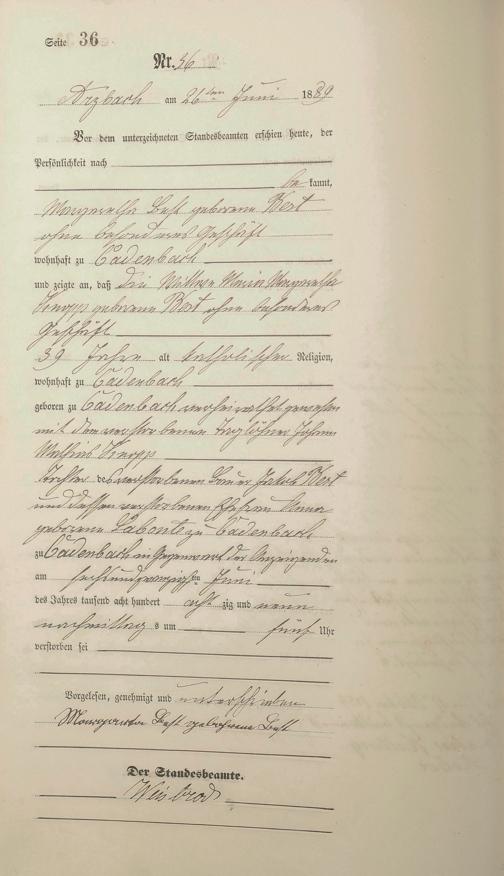 Seite 36
Nr. 36
Arzbach am 26ten Juni 1889
Vor dem unterzeichneten Standesbeamten erschien heute, der
Persönlichkeit nach
be kannt,
Margaretha Best geborene Best
ohne besonderes Geschäft
wohnhaft zu Cadenbach
und zeigte an, daß die Wittwe Maria Margaretha
Knopp geborene Best ohne besonderes
Geschäft
39 Jahre alt katholischer Religion,
wohnhaft zu Cadenbach
geboren zu Cadenbach verheirathet gewesen
mit dem verstorbenen Taglöhner Johann
Mathias Knopp
Tochter des verstorbenen Bauer Jakob Best
und dessen verstorbenen Ehefrau Anna
geborene Labonte zu Cadenbach
zu Cadenbach in Gegenwart der Anzeigenden
am sechsundzwanzigsten Juni
des Jahres tausend acht hundert acht zig und neun
nachmittag s um fünf Uhr
verstorben sei
Vorgelesen, genehmigt und unterschrieben
Margareta Best geborene Best
Der Standesbeamte.
Weisbrod